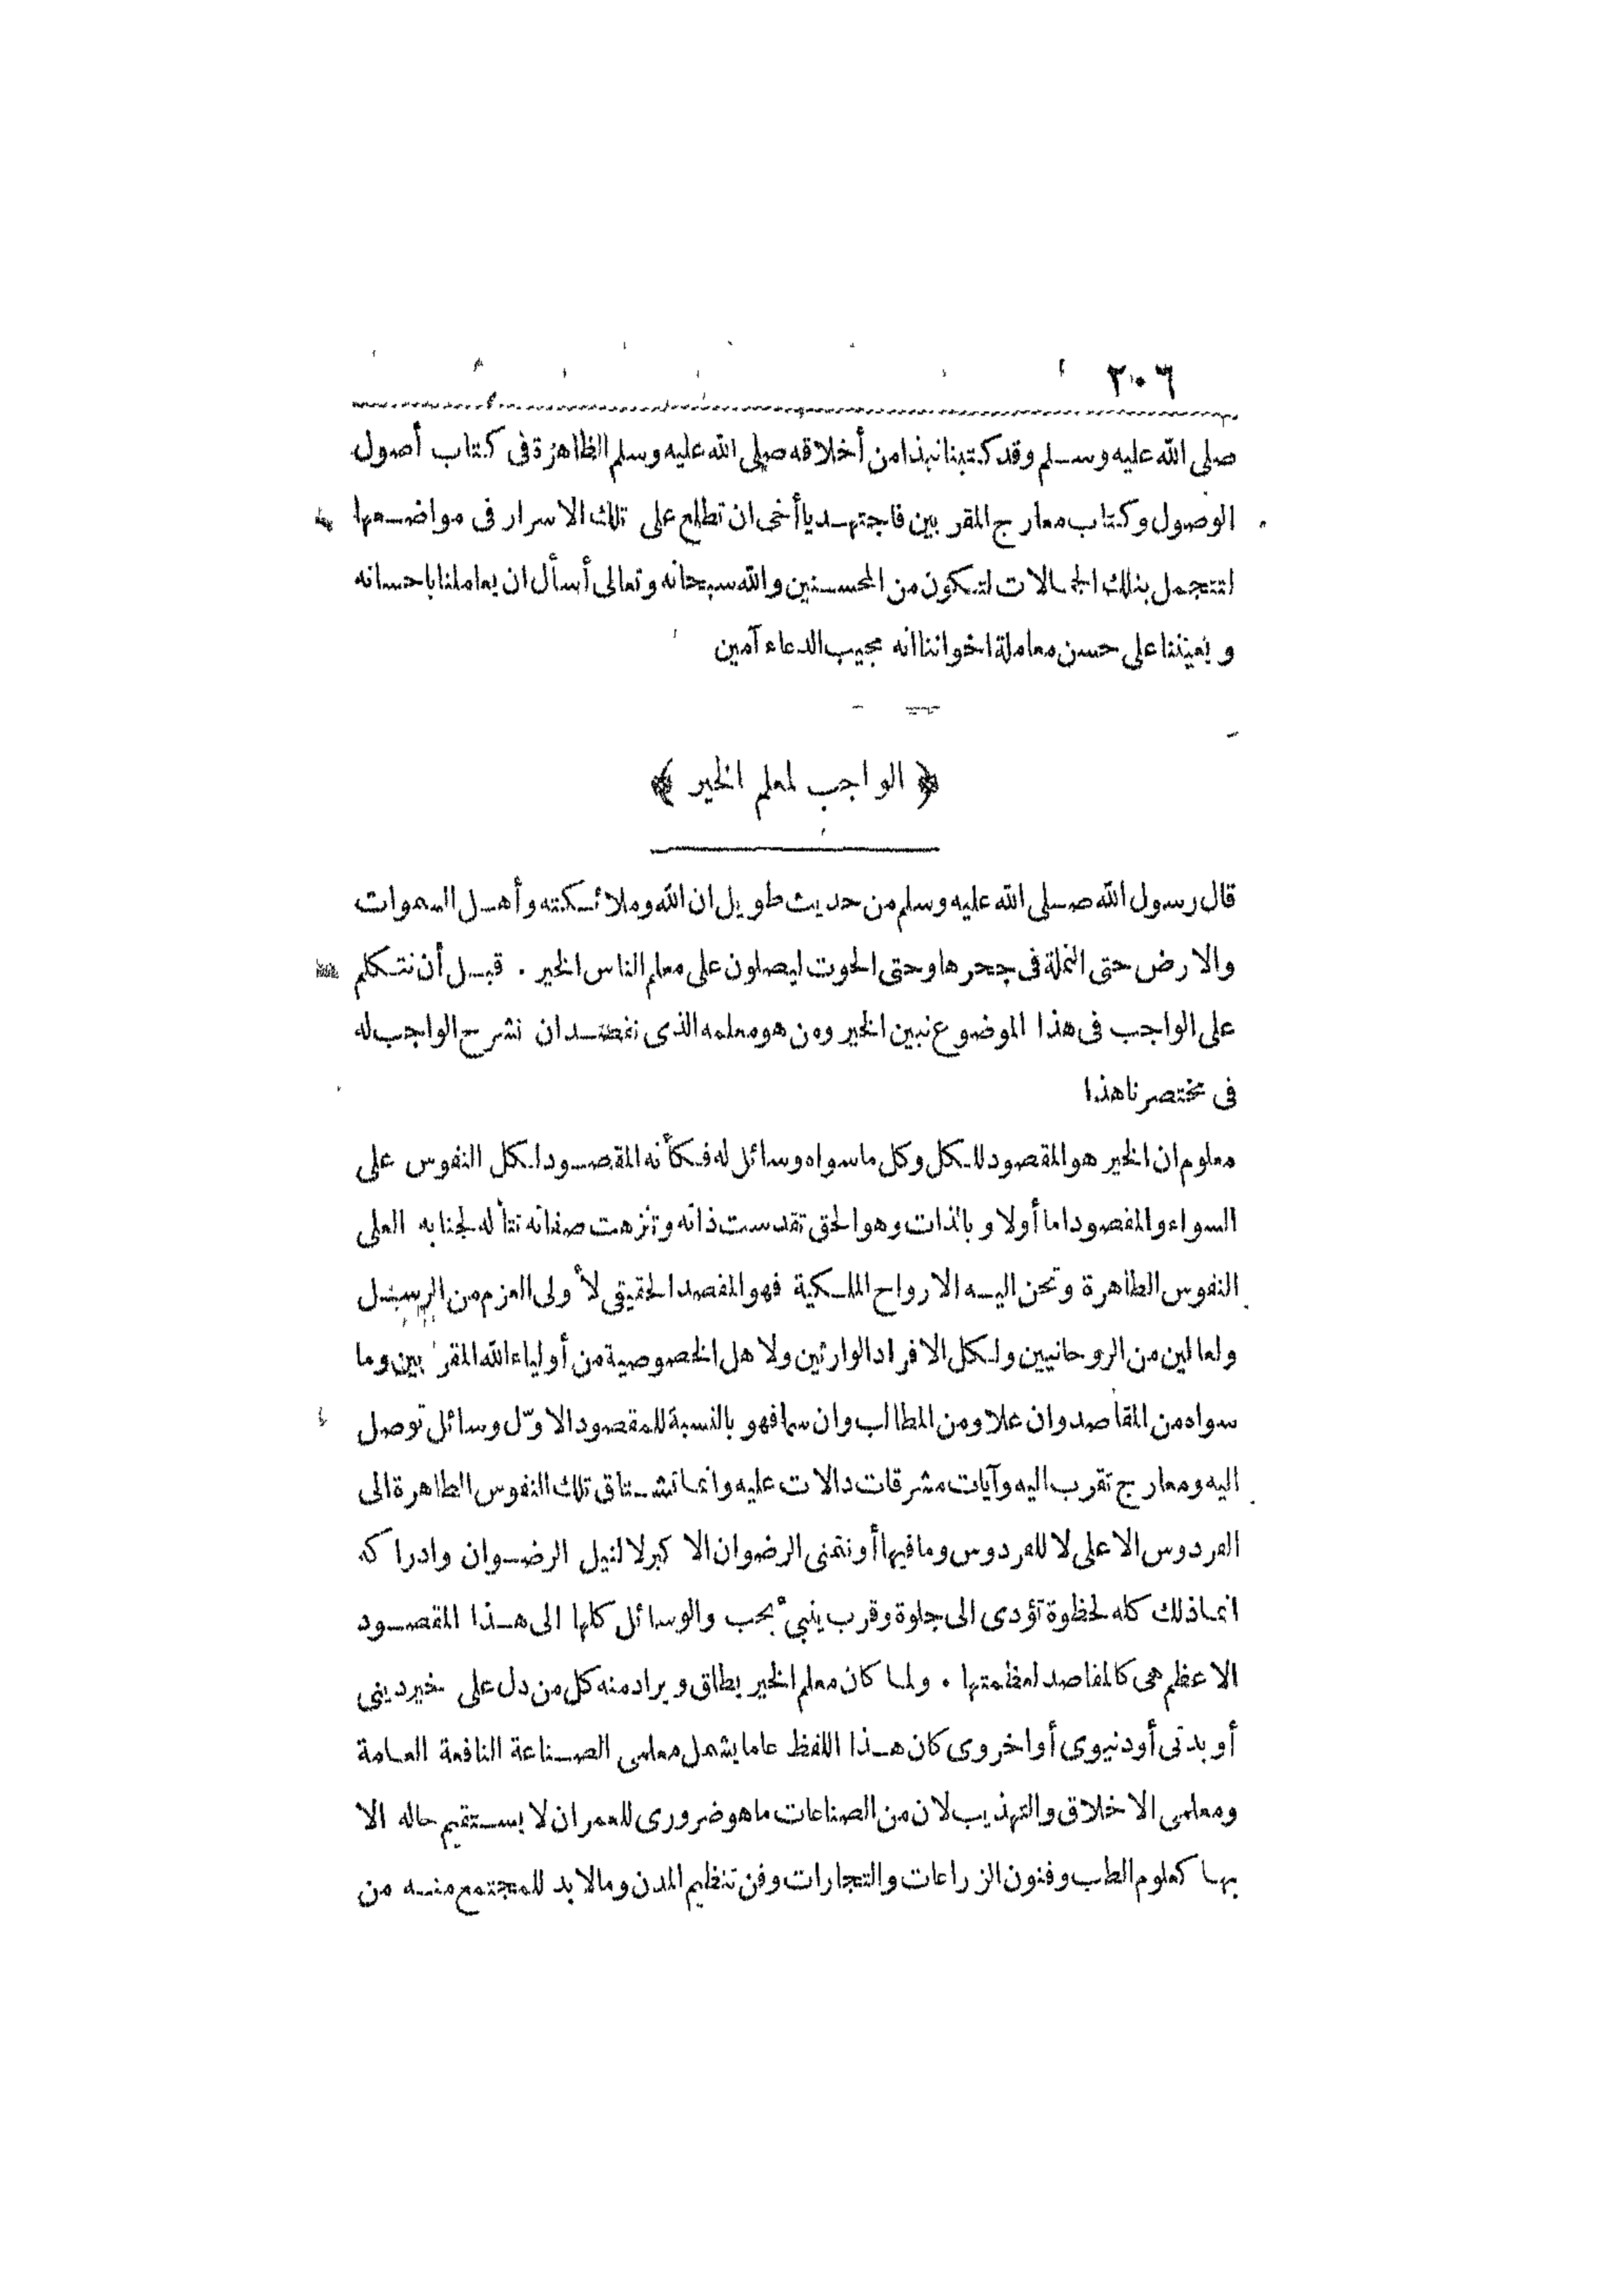 ٢٠٦
صلى الله عليه وسلم وقد كتبنا نبذا من أخلاقه صلى الله عليه وسلم الظاهرة فى كتاب أصول
الوصول وكتاب معارج المقربين فاجتهد ياأخى ان تطلع على تلك الاسرار فى مواضعها
لتتجمل بتلك الجمالات لتكون من المحسنين والله سبحانه وتعالى أسأل ان يعاملنا باحسانه
و يعيننا على حسن معاملة اخواننا انه مجيب الدعاء آمين
﴿ الواجب لمعلم الخير ﴾
قال رسول الله صلى الله عليه وسلم من حديث طويل ان الله وملائكته وأهل السموات
والارض حتى النملة فى جحرها وحتى الحوت ليصلون على معلم الناس الخير . قبل أن نتكلم
على الواجب فى هذا الموضوع نبين الخير ومن هو معلمه الذى نقصد ان نشرح الواجب له
فى مختصرنا هذا
معلوم ان الخير هو المقصود للكل وكل ماسواه وسائل له فكأنه المقصود لكل النفوس على
السواء والمقصود اما أولا وبالذات وهو الحق تقدست ذاته وتنزهت صفاته تتأله لجنابه العلى
النفوس الطاهرة وتحن اليه الارواح الملكية فهو المقصد الحقيقى لأولى العزم من الرسل
ولعالين من الروحانيين ولكل الافراد الوارثين ولاهل الخصوصية من أولياء الله المقربين وما
سواه من المقاصد وان علا ومن المطالب وان سما فهو بالنسبة للمقصود الاوّل وسائل توصل
اليه ومعارج تقرب اليه وآيات مشرقات دالات عليه وانما تشتاق تلك النفوس الطاهرة الى
الفردوس الاعلى لا للفردوس ومافيها أو نتمنى الرضوان الاكبر لا لنيل الرضوان وادراكه
انما ذلك كله لحظوة تؤدى الى جلوة وقرب ينبئ بحب والوسائل كلها الى هذا المقصود
الاعظم هى كالمقاصد لعظمتها . ولما كان معلم الخير يطلق ويراد منه كل من دل على خير دينى
أو بدنى أو دنيوى أو اخروى كان هذا اللفظ عاما يشمل معلمى الصناعة النافعة العامة
ومعلمى الاخلاق والتهذيب لان من الصناعات ماهو ضرورى للعمران لا يستقيم حاله الا
بها كعلوم الطب وفنون الزراعات والتجارات وفن تنظيم المدن ومالابد للمجتمع منه من